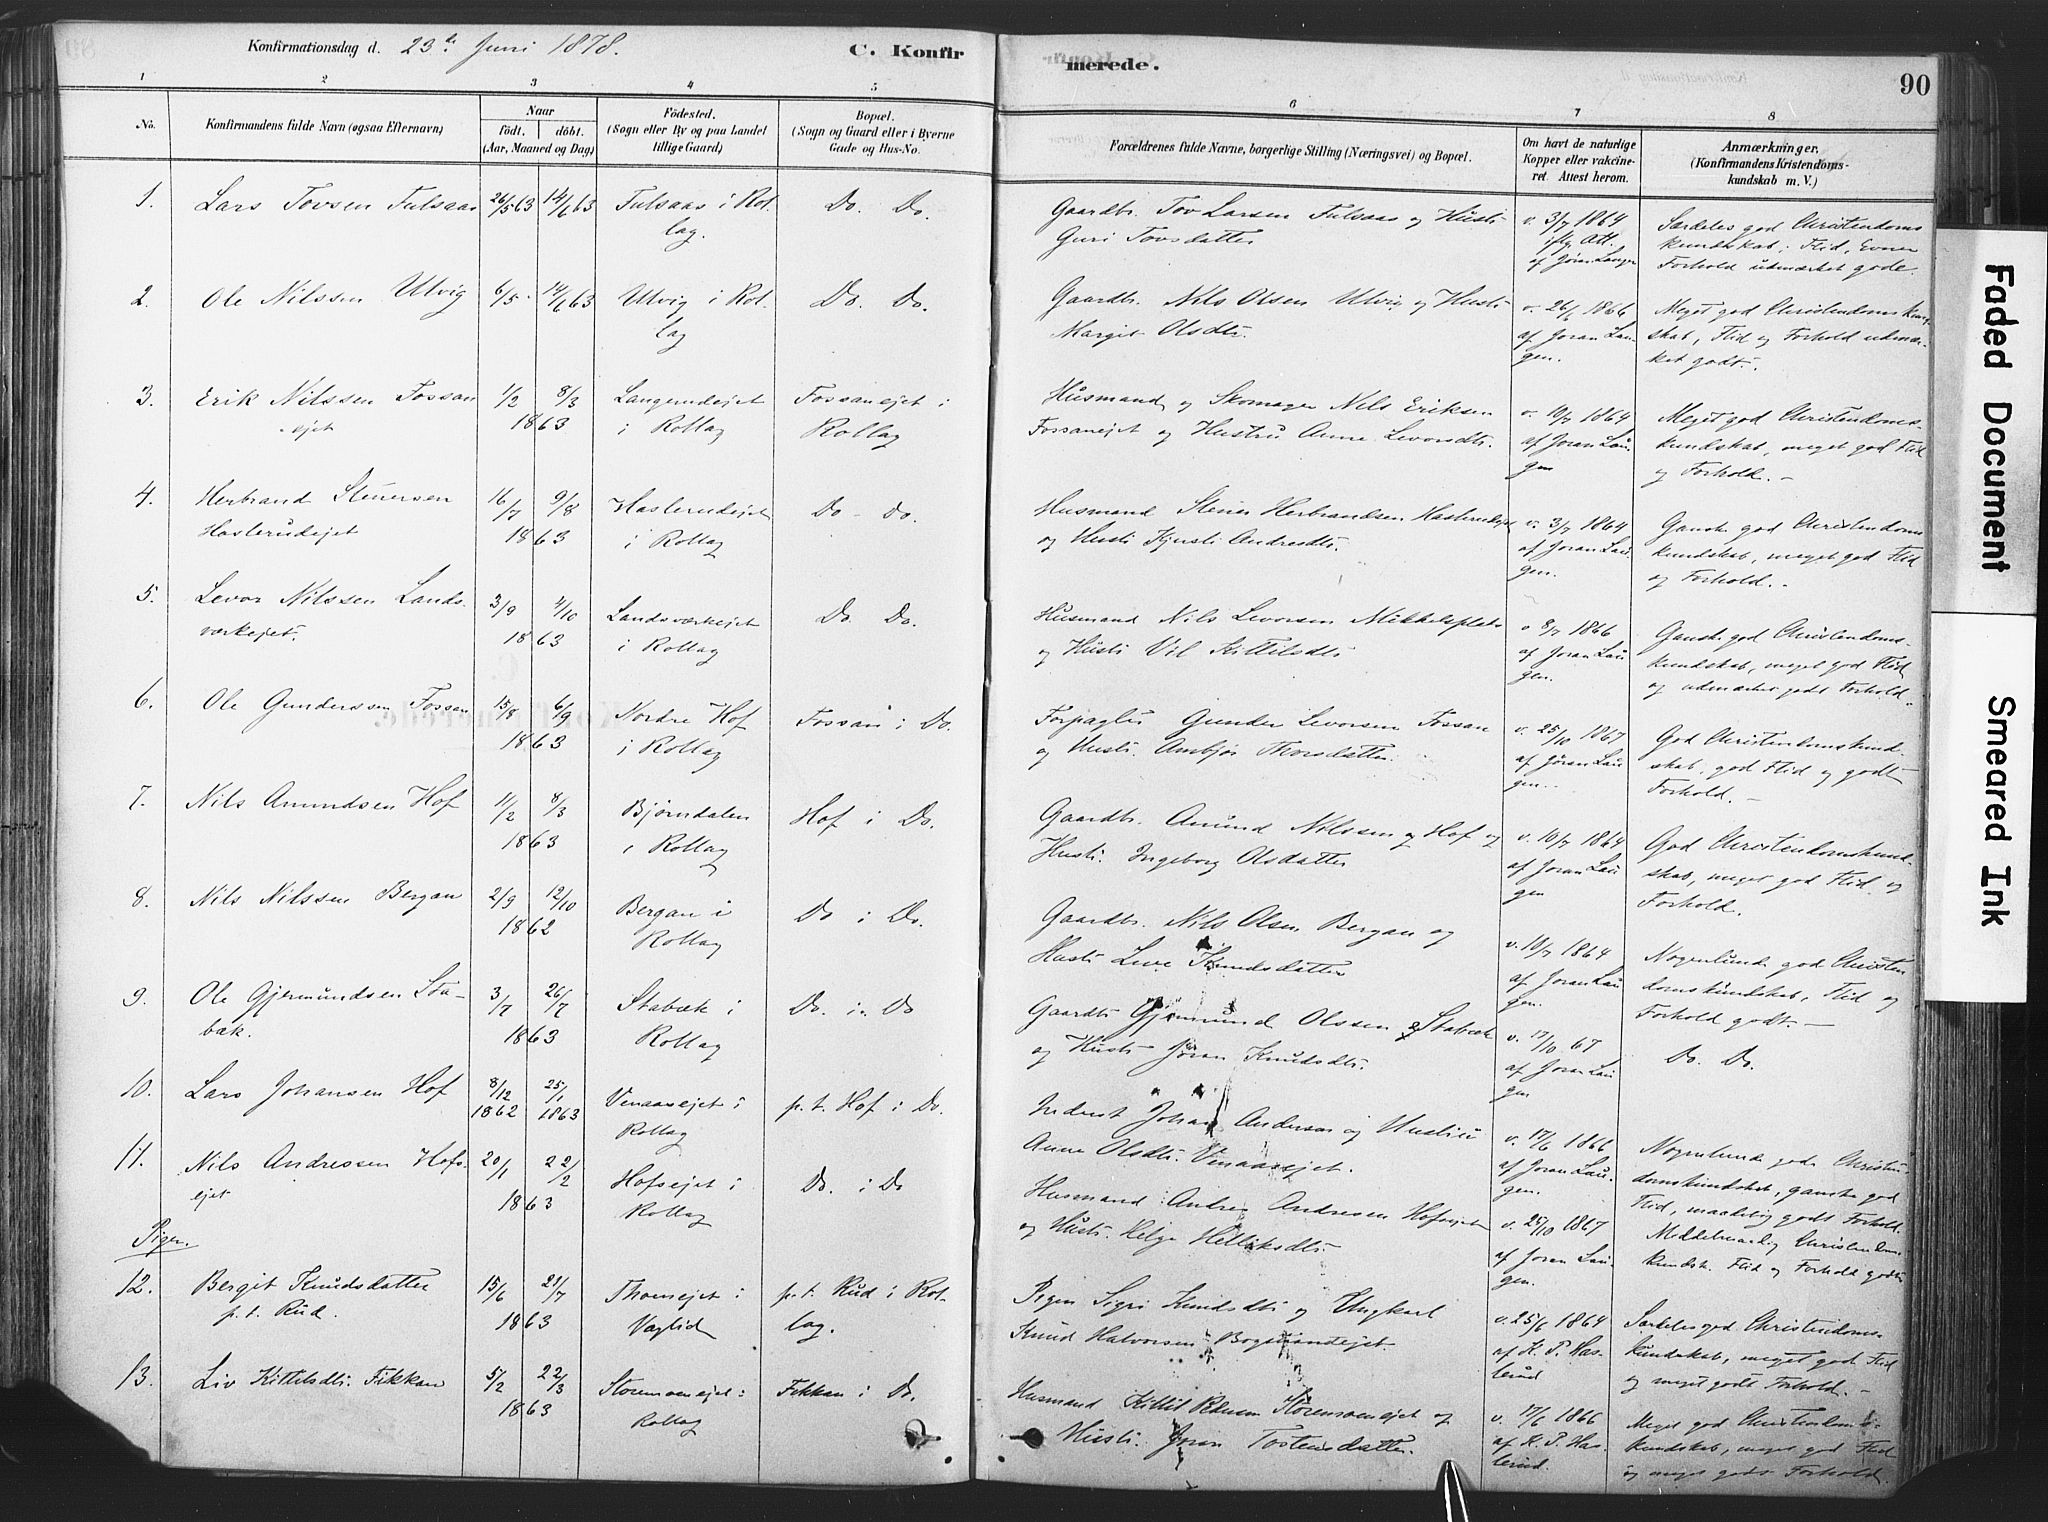 Konfirmationsdag d. 23de Juni 1878.
C. Konfirmerede.
90
1 2 3 4 5 6 7 8
No.
Konfirmandens fulde Navn (ogsaa Efternavn)
Naar
födt. döbt.
(Aar, Maaned og Dag)
Födested.
(Sogn eller By og paa Landet
tillige Gaard)
Bopæl.
(Sogn og Gaard eller i Byerne
Gade og Hus-No.
Forældrenes fulde Navne, borgerlige Stilling (Næringsvei) og Bopæl.
Om havt de naturlige
Kopper eller vakcine-
ret. Attest herom.
Anmærkninger,
(Konfirmandens Kristendoms-
kundskab m. V.)
1. Lars Tovsen Fulsaas 26/5 63 14/6 63 Fulsaas i Rol- Do. Do.
lag.
Gaardbr. Tov Larsen Fulsaas og Hustr.
Guri Tovsdatter
v. 3/7 1864
iflg. Att.
af Jøran Laugen
Særdeles god Christendoms
kundskab. Flid, Evner
Forhold udmærket gode.
2. Ole Nilssen Ulvig 6/5 14/6 63 Ulvig i Rol- Do. Do.
lag
Gaardbr. Nils Olsen Ulvig og Hustr.
Margit Olsdtr.
v. 26/6 1866
af Joran Lau-
gen.
Meget god Christendomskund-
skab, Flid og Forhold udmær-
ket godt.
3. Erik Nilssen Fossan 1/2 8/3 Langerudejet Fossanejet i
ejet 1863 i Rollag Rollag
Husmand og Skomager Nils Eriksen
Fossanejet og Hustru Anne Levorsdtr.
v. 10/7 1864
af Joran Lau-
gen
Meget god Christendoms-
kundskab, meget god Flid
og Forhold. -
4. Herbrand Stenersen 16/7 9/8 Haslerudejet Do - do.
Haslerudejet 1863 i Rollag
Husmand Stener Herbrandsen Haslerudejet
og Hustr. Kjersti Andresdtr.
v. 3/7 1864
af Joran Lau-
gen.
Ganske god Christendoms
kundskab, meget god Flid
og Forhold. -
5. Levor Nilssen Lands- 3/9 4/10 Landsværkejet Do. Do.
værkejet. 1863 i Rollag
Husmand Nils Levorsen Mikkelsplads
og Hustr. Vil Kittilsdtr.
v 8/7 1866
af Joran Lau-
gen.
Ganske god Christendoms-
kundskab, meget god Flid
og udmærket godt Forhold.
6. Ole Gunderssen Fossan 15/8 6/9 Nordre Hof Fossan i Do.
1863 i Rollag
Forpagter Gunder Levorsen Fossan
og Hustr. Ambjør Thorsdatter.
v. 25/10 1867
af Jøran Lau-
gen.
God Christendomskund-
skab, god Flid og godt
Forhold. -
7. Nils Amundsen Hof 11/2 8/3 Bjørndalen Hof i Do.
1863 i Rollag
Gaardbr. Amund Nilssen Hof og
Hustr. Ingeborg Olsdatter
v. 10/7 1864
af Joran Lau
gen
God Christendomskund-
skab, meget god Flid og
Forhold.
8. Nils Nilssen Bergan 2/9 12/10 Bergan i Do i Do.
1862 Rollag
Gaardbr. Nils Olsen Bergan og
Hustr. Live Knudsdatter
v. 10/7 1864
af Joran Lau
gen.
Nogenlunde god Christen
domskundskab, Flid og
Forhold godt. -
9. Ole Gjermundsen Sta- 3/7 26/7 Stabæk i Do. i Do
bæk. 1863 Rollag
Gaardbr. Gjermund Olssen Stabæk
og Hustr. Jøran Knudsdtr.
v. 17/10 67
af Joran Lau
gen
Do. Do.
10. Lars Johansen Hof 8/12 25/1 Venaasejet i p.t. Hof i Do.
1862 1863 Rollag
Inderst Johan Anderssen og Hustru
Anne Olsdtr. Venaasejet.
v. 17/6 1866
af Joran Lau-
gen.
Nogenlunde god Christen-
domskundskab, ganske god
Flid, maadelig godt Forhold.
11. Nils Andressen Hofs- 20/1 22/2 Hofsejet i Do. i Do
ejet 1863 Rollag
Husmand Andres Andresen Hofsejet
og Hustr. Helge Helliksdtr.
v. 25/10 1867
af Joran Lau
gen.
Middelmaadig Christendoms-
kundsk. Flid og Forhold godt.
Piger.
12. Bergit Knudsdatter 15/6 21/7 Thomsejet i p.t. Rud i Rol-
p.t. Rud. 1863 Væglid lag.
Pigen Sigri Knudsdtr. og Ungkarl
Knud Halvorsen
v. 25/6 1864
af K. P. Has-
lerud
Særdeles god Christendoms-
kundskab, meget god Flid
og meget godt Forhold. -
13. Liv Kittilsdtr. Fikkan 5/2 22/3 Storemoenejet i Fikkan i Do.
1863 Rollag
Husmand Kittil Storemoenejet og
Hustr. Jøran Tostensdatter.
v. 17/6 1866
af K. P. Has-
lerud.
Meget god Christendoms-
kundskab, meget god Flid
og meget godt Forhold.
Faded Document
Smeared Ink